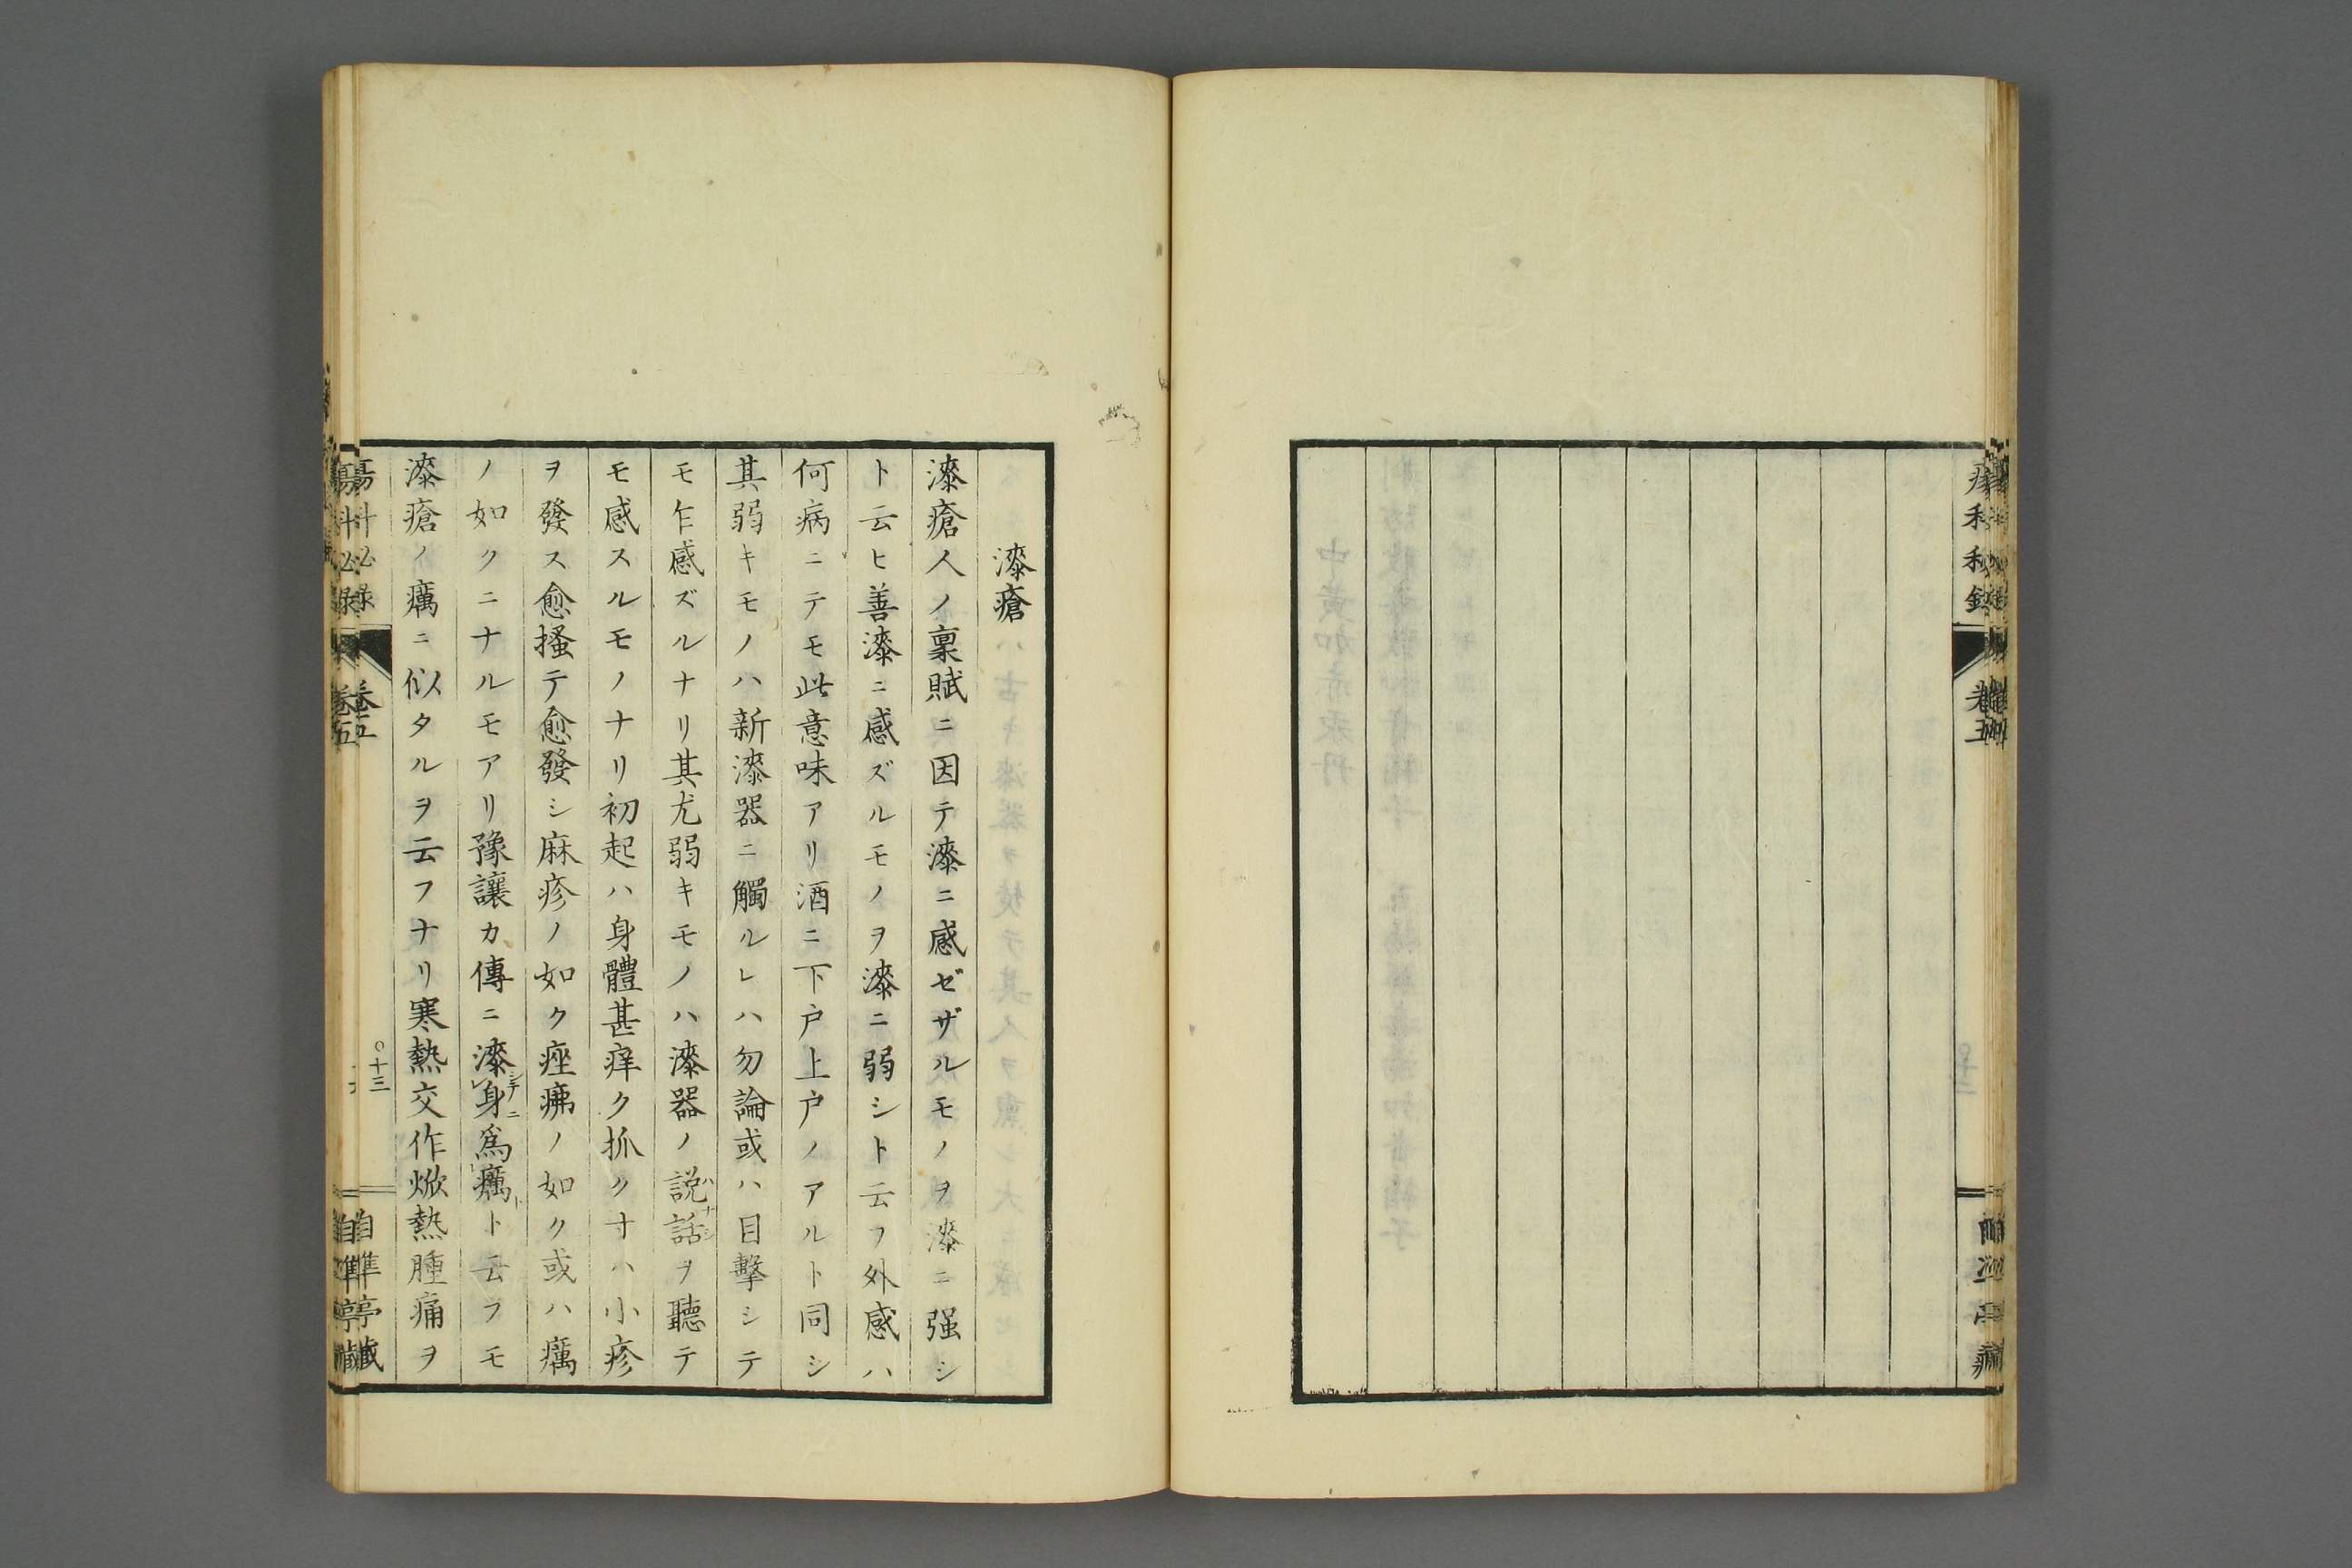 漆瘡
漆瘡人ノ稟賦ニ因テ漆ニ感ゼザルモノヲ漆ニ强シ
ト云ヒ善漆ニ感ズルモノヲ漆ニ弱シト云フ外感ハ
何病ニテモ此意味アリ酒ニ下戸上戸ノアルト同シ
其弱キモノハ新漆器ニ觸ルレハ勿論或ハ目擊シテ
モ乍感ズルナリ其尤弱キモノハ漆器ノ説話ヲ聽テ
モ感スルモノナリ初起ハ身體甚痒ク抓クヿハ小疹
ヲ發ス愈搔テ愈發シ麻疹ノ如ク痤疿ノ如ク或ハ癘
ノ如クニナルモアリ豫讓カ傳ニ漆身爲癘ト云フモ
漆瘡ノ癘ニ似タルヲ云フナリ寒熱交作焮熱腫痛ヲ
卷五
十三
自準亭藏